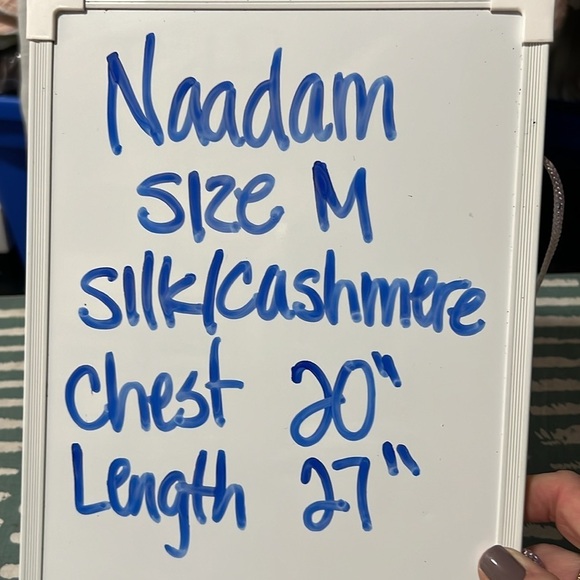 Naadam
size M
silk/cashmere
Chest 20"
Length 27"